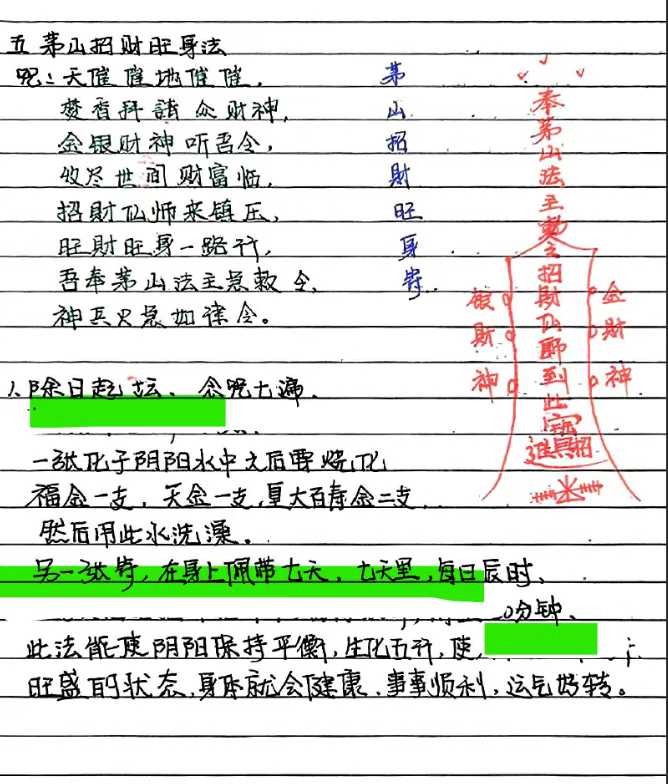 五 茅山招财旺身法
咒:天催催地催催,
焚香拜請众财神,
金银财神听吾令,
收尽世间财富临,
招財仙师来镇压,
旺財旺身一路行,
吾奉茅山法主急敕令,
神兵火急如律令。
茅山招財旺身符
奉茅山法主勅令招財仙师到此
進寶招
银財神
金財神
1.除日起坛、念咒七遍,
一张化于阴阳水中之后要烧化
福金一支,天金一支,更大百寿金二支
然后用此水洗澡。
另一张符,在身上佩带七天,七天里,每日辰时、
0分钟、
此法能使阴阳保持平衡,生化五行,使
旺盛的状态,身体就会健康,事事顺利,运气好转。